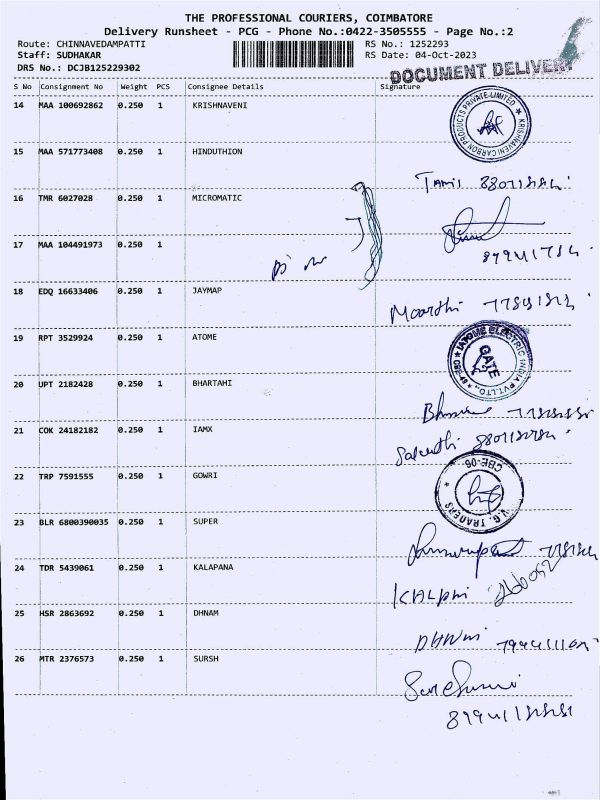 THE PROFESSIONAL COURIERS, COIMBATORE
Delivery Runsheet - PCG - Phone No.:0422-3505555 - Page No.:2
Route: CHINNAVEDAMPATTI RS No.: 1252293
Staff: SUDHAKAR RS Date: 04-Oct-2023
DRS No.: DCJB125229302
DOCUMENT DELIVERY
S No Consignment No Weight PCS Consignee Details Signature
14 MAA 100692862 0.250 1 KRISHNAVENI
KRISHNAVENI CARBON PRODUCTS PRIVATE LIMITED
15 MAA 571773408 0.250 1 HINDUTHION
Tamil
16 TMR 6027028 0.250 1 MICROMATIC
17 MAA 104491973 0.250 1
18 EDQ 16633406 0.250 1 JAYMAP
Moorthi
19 RPT 3529924 0.250 1 ATOME
GATE
20 UPT 2182428 0.250 1 BHARTAHI
21 COK 24182182 0.250 1 IAMX
22 TRP 7591555 0.250 1 GOWRI
V.G. TRADERS CBE-06
23 BLR 6800390035 0.250 1 SUPER
24 TDR 5439061 0.250 1 KALAPANA
25 HSR 2863692 0.250 1 DHNAM
26 MTR 2376573 0.250 1 SURSH